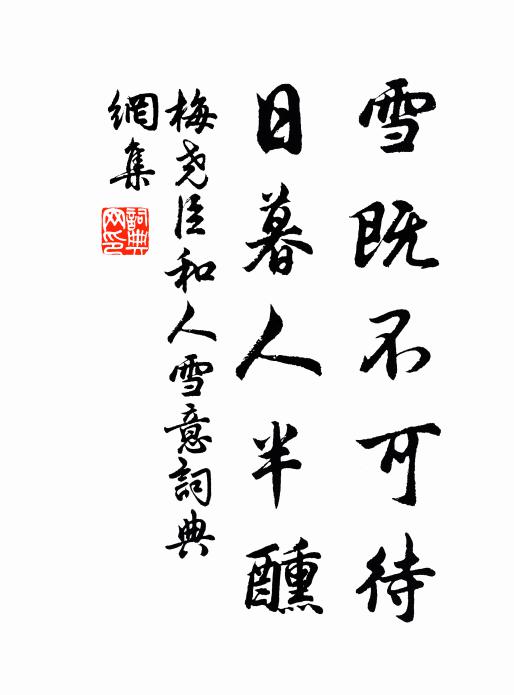 雪既不可待
日暮人半醺
梅尧臣和人雪意詞典
網集
詞典網印